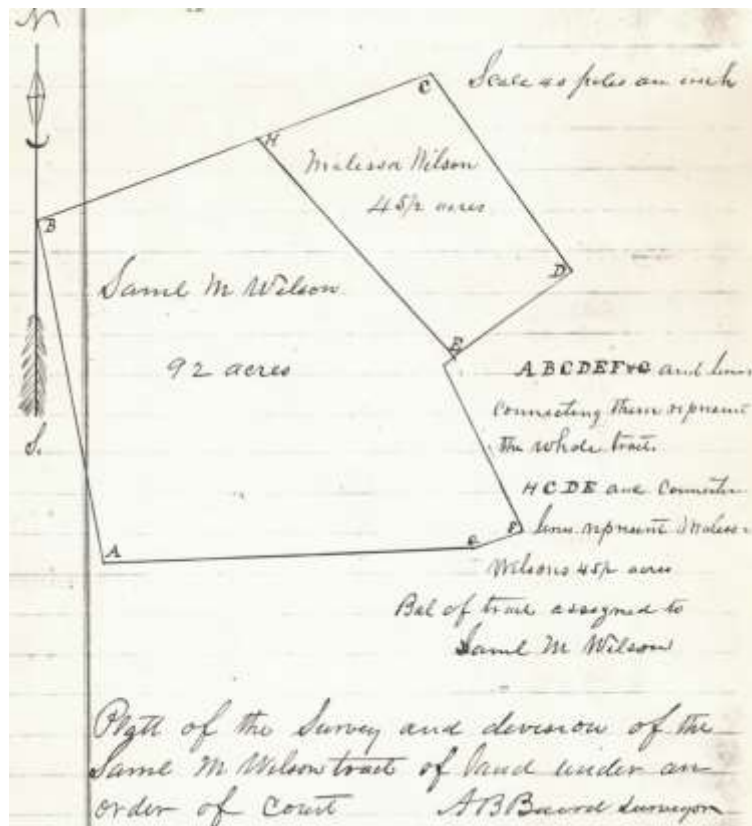 N
C
Scale 40 poles an inch
H
Malissa Wilson
45½ acres
B
D
Saml M Wilson
92 acres
E
A B C D E F & G and lines
connecting them represent
the whole tract.
S.
H C D E and connecting
lines represent Malissa
Wilsons 45½ acres
F
G
A
Bal of tract assigned to
Saml M Wilson
Platt of the Survey and division of the
Saml M Wilson tract of land under an
order of Court A B Baird Surveyor